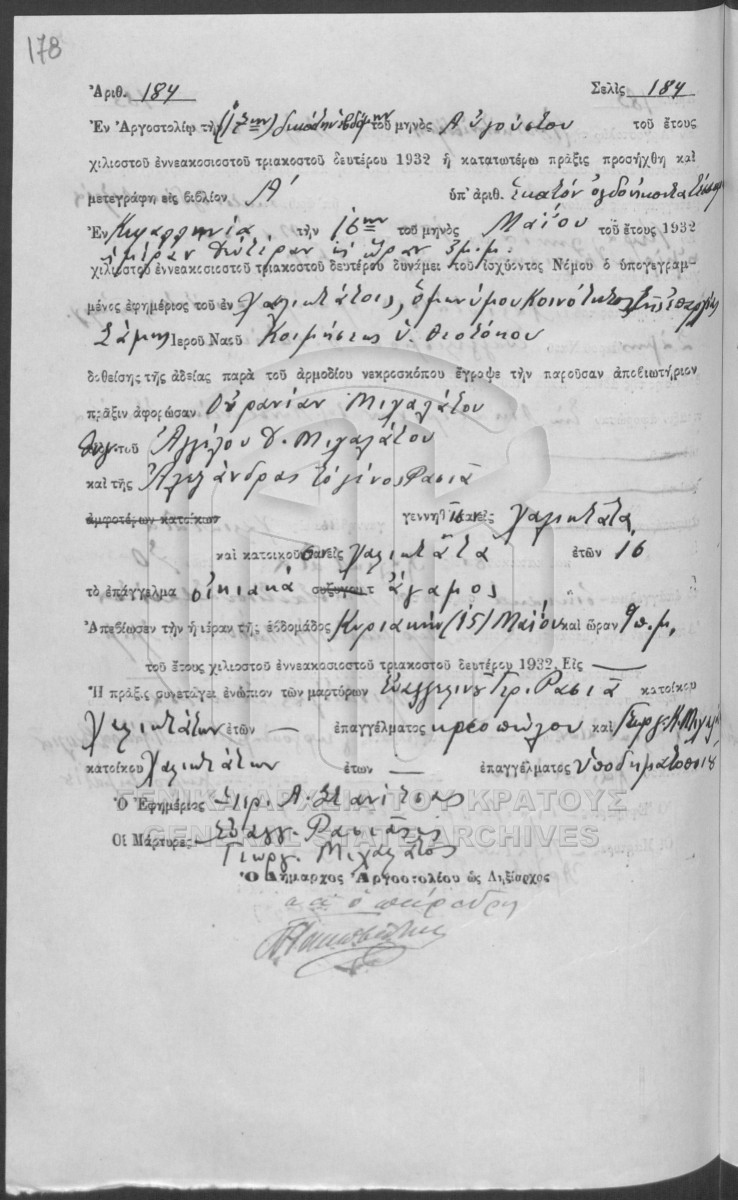 178
Ἀριθ. 184 Σελὶς 184
Ἐν Ἀργοστολίῳ τὴν (17ην) δεκάτην ἑβδόμην τοῦ μηνὸς Αὐγούστου τοῦ ἔτους
χιλιοστοῦ ἐννεακοσιοστοῦ τριακοστοῦ δευτέρου 1932 ἡ κατατωτέρω πρᾶξις προσήχθη καὶ
μετεγράφη εἰς βιβλίον Α' ὑπ' ἀριθ. ἑκατὸν ὀγδοήκοντα τέσσαρα
Ἐν Κεφαλληνίᾳ τὴν 16ην τοῦ μηνὸς Μαΐου τοῦ ἔτους 1932
ἡμέραν Δευτέραν καὶ ὥραν 3 μ.μ.
χιλιοστοῦ ἐννεακοσιοστοῦ τριακοστοῦ δευτέρου δυνάμει τοῦ ἰσχύοντος Νόμου ὁ ὑπογεγραμ-
μένος ἐφημέριος τοῦ ἐν Χαλιωτάτοις, ὁμωνύμου Κοινότητος τῆς ἐπαρχίας
Σάμης Ἱεροῦ Ναοῦ Κοιμήσεως Ὑ. Θεοτόκου
δοθείσης τῆς ἀδείας παρὰ τοῦ ἁρμοδίου νεκροσκόπου ἔγραψε τὴν παροῦσαν ἀποβιωτήριον
πρᾶξιν ἀφορῶσαν Οὐρανίαν Μιχαλάτου
θυγ. τοῦ Ἀγγέλου Δ. Μιχαλάτου
καὶ τῆς Ἀλεξάνδρας τὸ γένος Ρασιᾶ
ἀμφοτέρων κατοίκων γεννηθεῖσαν εἰς Χαλιωτάτα
καὶ κατοικοῦσαν εἰς Χαλιωτάτα ἐτῶν 16
τὸ ἐπάγγελμα οἰκιακὰ συζύγου τ ἄγαμος
Ἀπεβίωσεν τὴν ἡμέραν τῆς ἑβδομάδος Κυριακὴν (15) Μαΐου καὶ ὥραν 9 π.μ.
τοῦ ἔτους χιλιοστοῦ ἐννεακοσιοστοῦ τριακοστοῦ δευτέρου 1932. Εἰς —
Ἡ πρᾶξις συνετάγει ἐνώπιον τῶν μαρτύρων Εὐαγγελινοῦ Γερ. Ρασιᾶ κατοίκου
Χαλιωτάτων ἐτῶν — ἐπαγγέλματος κρεοπώλου καὶ Γεωργ. Μιχαλ
κατοίκου Χαλιωτάτων ἐτων — ἐπαγγέλματος ὑποδηματοποιοῦ
ΓΕΝΙΚΑ ΑΡΧΕΙΑ ΤΟΥ ΚΡΑΤΟΥΣ
Ὁ Ἐφημέριος Σπυρ. Α. Στανίτσας
GENERAL STATE ARCHIVES
Οἱ Μάρτυρες Εὐαγγ. Ρασιᾶς
Γεωργ. Μιχαλάτος
Ὁ Δήμαρχος Ἀργοστολίου ὡς Ληξίαρχος
ὁ πάρεδρος